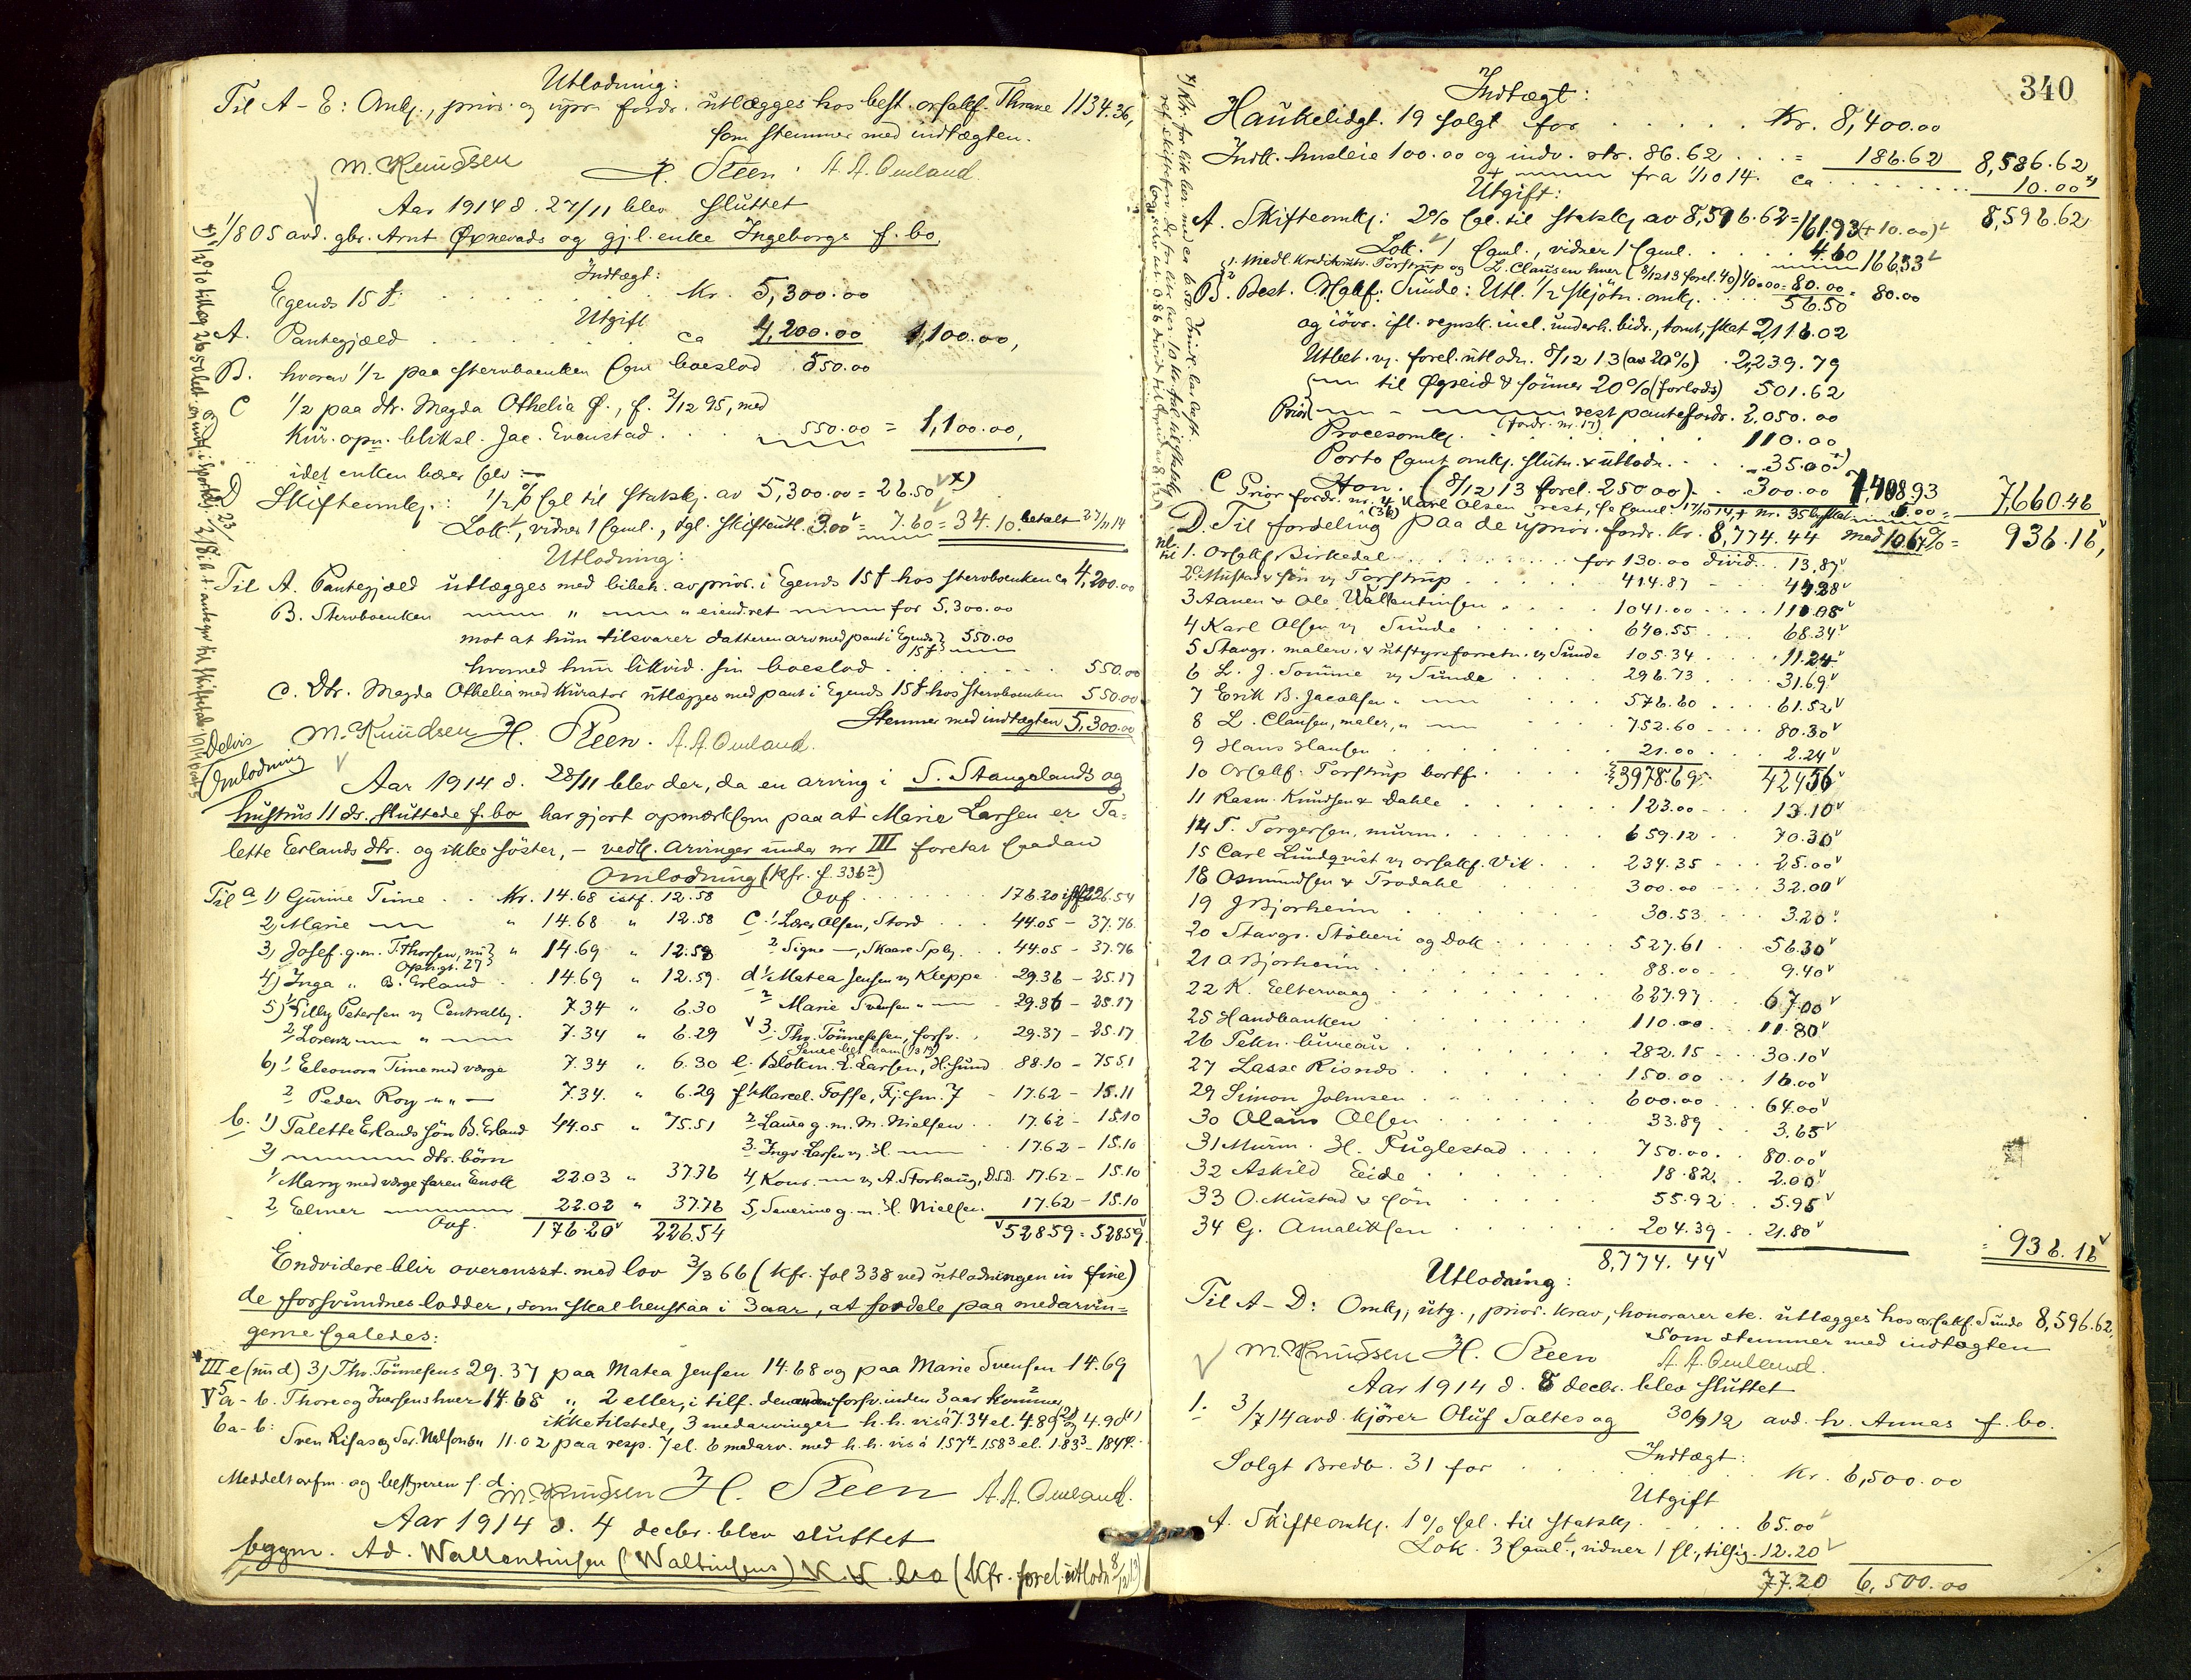 Utlodning:
Til A-E: Omk., prior. og upr. fordr. utlægges hos best. orsakf. Thrane 1134.36,
som stemmer med indtægten.
M. Knudsen H. Steen. A. A. Omland.
Aar 1914 d. 27/11 blev sluttet
1/805 avd. gbr. Arnt Øxnevads og gj.l. enke Ingeborgs f. bo.
Indtægt:
Egenes 15 f. Kr. 5,300.00
Utgift
A. Pantegjæld ca 4,200.00 1,100.00,
B. hvorav 1/2 paa stervboenken som boeslod 550.00
C 1/2 paa dtr. Magda Othelia Ø., f. 3/12 95, med
Kur. opn. bliksl. Jac. Evenstad 550.00 = 1,100.00,
idet enken bærer selv
D Skifteomk.: 1/2 % sal til statsk. av 5,300.00 = 26.50 x)
Lok., vidner 1 saml., dgl. skifteutl. 3.00 = 7.60 = 34.10. betalt 27/11 14
Utlodning:
Til A. Pantegjæld utlægges med bibeh. av prior. i Egends 15 f hos stervboenken ca 4,200.00
B. Stervboenken " " eiendret for 5,300.00
mot at hun tilsvarer datteren arv med pant i Egends 15 f 550.00
hvormed hun likvid. sin boeslod 550.00
C. Dtr. Magda Othelia med Kurator utlægges med pant i Egends 15 f hos stervboenken 550.00
Stemmer med indtægten 5,300.00
M. Knudsen H. Steen. A. A. Omland.
Delvis Omlodning
Aar 1914 d. 28/11 blev der, da en arving i S. Stangelands og
hustrus 11 ds. sluttede f. bo har gjort opmerksom paa at Marie Larsen er Ta-
lette Erlands dtr. og ikke söster, - vedk. arvinger under nr III foretat saadan
Omlodning (kfr. f. 336 2)
Til a 1) Gurine Time Kr. 14.68 istf. 12.58 Ovf. 176.20 istf 226.54
2) Marie " 14.68 " 12.58 C. 1. Lars Olsen, Stord 44.05 - 37.76
3) Josef. g.m. T. Thorsen, nu Opn.gt. 29 " 14.69 " 12.59 2 Signe -, Skaare Spbg. 44.05 - 37.76
4) Inga " B. Erland 14.69 " 12.59. d 1. Matea Jensen v/ Kleppe 29.36 - 25.17
5) 1 Tilly Petersen v/ Centralbg. 7.34 " 6.30 2 Marie Svensen " 29.36 - 25.17
2 Lorenz " 7.34 " 6.29 3. Thv. Tönnesen, forsv. 29.37 - 25.17
6) 1 Eleonora Time med værge 7.34 " 6.30 e. Blokm. E. Larsen, H.sund 88.10 - 75.51
2 Peder Roy " " - 7.34. " 6.29 f 1. Marcel. Fosse, Tj.sm. 7 - 17.62 - 15.11
b. 1) Talette Erlands sön B. Erland 44.05 " 75.51 2. Laura g.m. M. Nielsen 17.62 - 15.10
2) dtr. börn 3. Ingv. Larsen v/ H. 17.62 - 15.10
1 Mary med værge faren Enok 22.03 " 37.76 4, Konr. v/ A. Storhaug, D.s.d. 17.62 - 15.10
2 Elmer 22.02 " 37.76 5, Severine g.m. H. Nielsen 17.62 - 15.10
Ovf. 176.20 226.54 528.59 = 528.59
Endvidere blir overensst. med lov 3/3 66 (kfr. fol 338 ved utlodningen in fine)
de forsvundnes lodder, som skal henstaa i 3 aar, at fordele paa medarvin-
gerne saaledes:
III e (nu d) 3) Thv. Tönnesens 29.37 paa Matea Jensen 14.68 og paa Marie Svensen 14.69
V 5 a-b. Thore og Iversens hver 14.68 " 2 eller, i tilf. den anden forsv. inden 3 aar kommer
ikke tilstede, 3 medarvinger h.h. vis á 7.34 el. 4.89 og 4.90
6a-b: 11.02 paa resp. 7 el. 6 medarv. med h.h. vis á 1.57 4 - 1.58 3 el. 1.83 3 - 1.84
Meddelt arfm. og bestyreren s. d.
M. Knudsen H. Steen A. A. Omland.
Aar 1914 d. 4 decbr. blev sluttet
byggm. Ad. Wallentinsen (Waltinsens) K.K. bo (Kfr. forel. utlodn 8/12 13)
340
Indtægt:
Haukelidgt. 19 solgt for Kr. 8,400.00
Indk. husleie 100.00 og indv. rtr. 86.62 = 186.62 8,586.62
+ fra 1/10 14. ca 10.00 x)
Utgift:
A. Skifteomk.: 2% sal. til statsk. av 8,596.62 = 161.93 (+ 10.00) 8,596.62
Lok. 1 saml., vidner 1 saml. 4.60 166.53
1. Medl. Kreditutv. Torstrup og L. Clausen hver (8/12 13 forel. 40) 40.00 = 80.00 = 80.00
B. Best. Orsakf. Sunde: Utl. 1/2 skjötn. omk. 56.50
og iövr. ifl. regnsk. incl. underh. bidr., tomt, skat 2,116.02
Utbet. v. forel. utlodn. 8/12 13 (av 20%) 2,239.79
til Øgreid & sönner 20% (forlods) 501.62
Prior rest pantefordr. 2,050.00
(fordr. nr. 17)
Procesomk. 110.00
Porto samt omk. slutn. & utlodn. 35.00
Hon. (8/12 13 forel. 250 00) 300.00 7,408.93
C Prior fordr. nr. 4 Karl Olsen, rest, 17/10 14, + nr. 35 byskat 5.00 = 7,660.46
D. Til fordeling paa de uprior. fordr. Kr. 8,774.44 med 10.67% = 936.16,
1. Orsakf Birkedal for 130.00 divid. 13.87
2. Mustad & sön v/ Torstrup 414.87 44.28
3 Aanen & Ole Wallentinsen 1041.00 111.05
4 Karl Olsen v/ Sunde 640.55 68.34
5 Stavgr. malerv. & utstyrsforretn. v/ Sunde 105.34 11.24
6 L. J. Sömme v/ Sunde 296.73 31.69
7 Erik B. Jacobsen " 576.60 61.52
8 L. Clausen, maler, " 752.60 80.30
9 Hans Hansen 21.00 2.24
10 Orsakf. Torstrup bortf. 3978.69 424.56
11 Rasm. Knudsen & Dahle 123.00 13.10
14 T. Torgersen, murm. 659.12 70.30
15 Carl Lundqvist v/ orsakf. Vik 234.35 25.00
18 Osmundsen & Trodahl 300.00 32.00
19 J Bjorheim 30.53 3.20
20 Stavgr. Stöberi og Dok 527.61 56.30
21 O. Bjorheim 88.00 9.40
22 K. Eeltervaag 627.97 67.00
25 Handbanken 110.00 11.80
26 Tekn. bureau 282.15 30.10
27 Lasse Risnes 150.00 16.00
29 Simon Johnsen 600.00 64.00
30 Olaus Olsen 33.89 3.65
31 Murm. H. Fuglestad 750.00 80.00
32 Askild Eide 18.82 2.00
33 O. Mustad & sön 55.92 5.95
34 G. Amaliksen 204.39 21.80
8,774.44 = 936.16
Utlodning:
Til A-D: Omk., utg., prior. krav, honorarer etc. utlægges hos orsakf. Sunde 8,596.62,
som stemmer med indtægten
M. Knudsen H. Steen A. A. Omland.
Aar 1914 d. 8 decbr. blev sluttet
1. 3/7 14 avd. kjörer Oluf Saltes og 30/9 12 avd. h. Annas f. bo.
Indtægt:
Solgt Bredb. 31 for Kr. 6,500.00
Utgift
A. Skifteomk. 1% sal. til statsk. 65.00
Lok. 3 saml., vidner 1 sl., tillig. 12.20
77.20 6,500.00